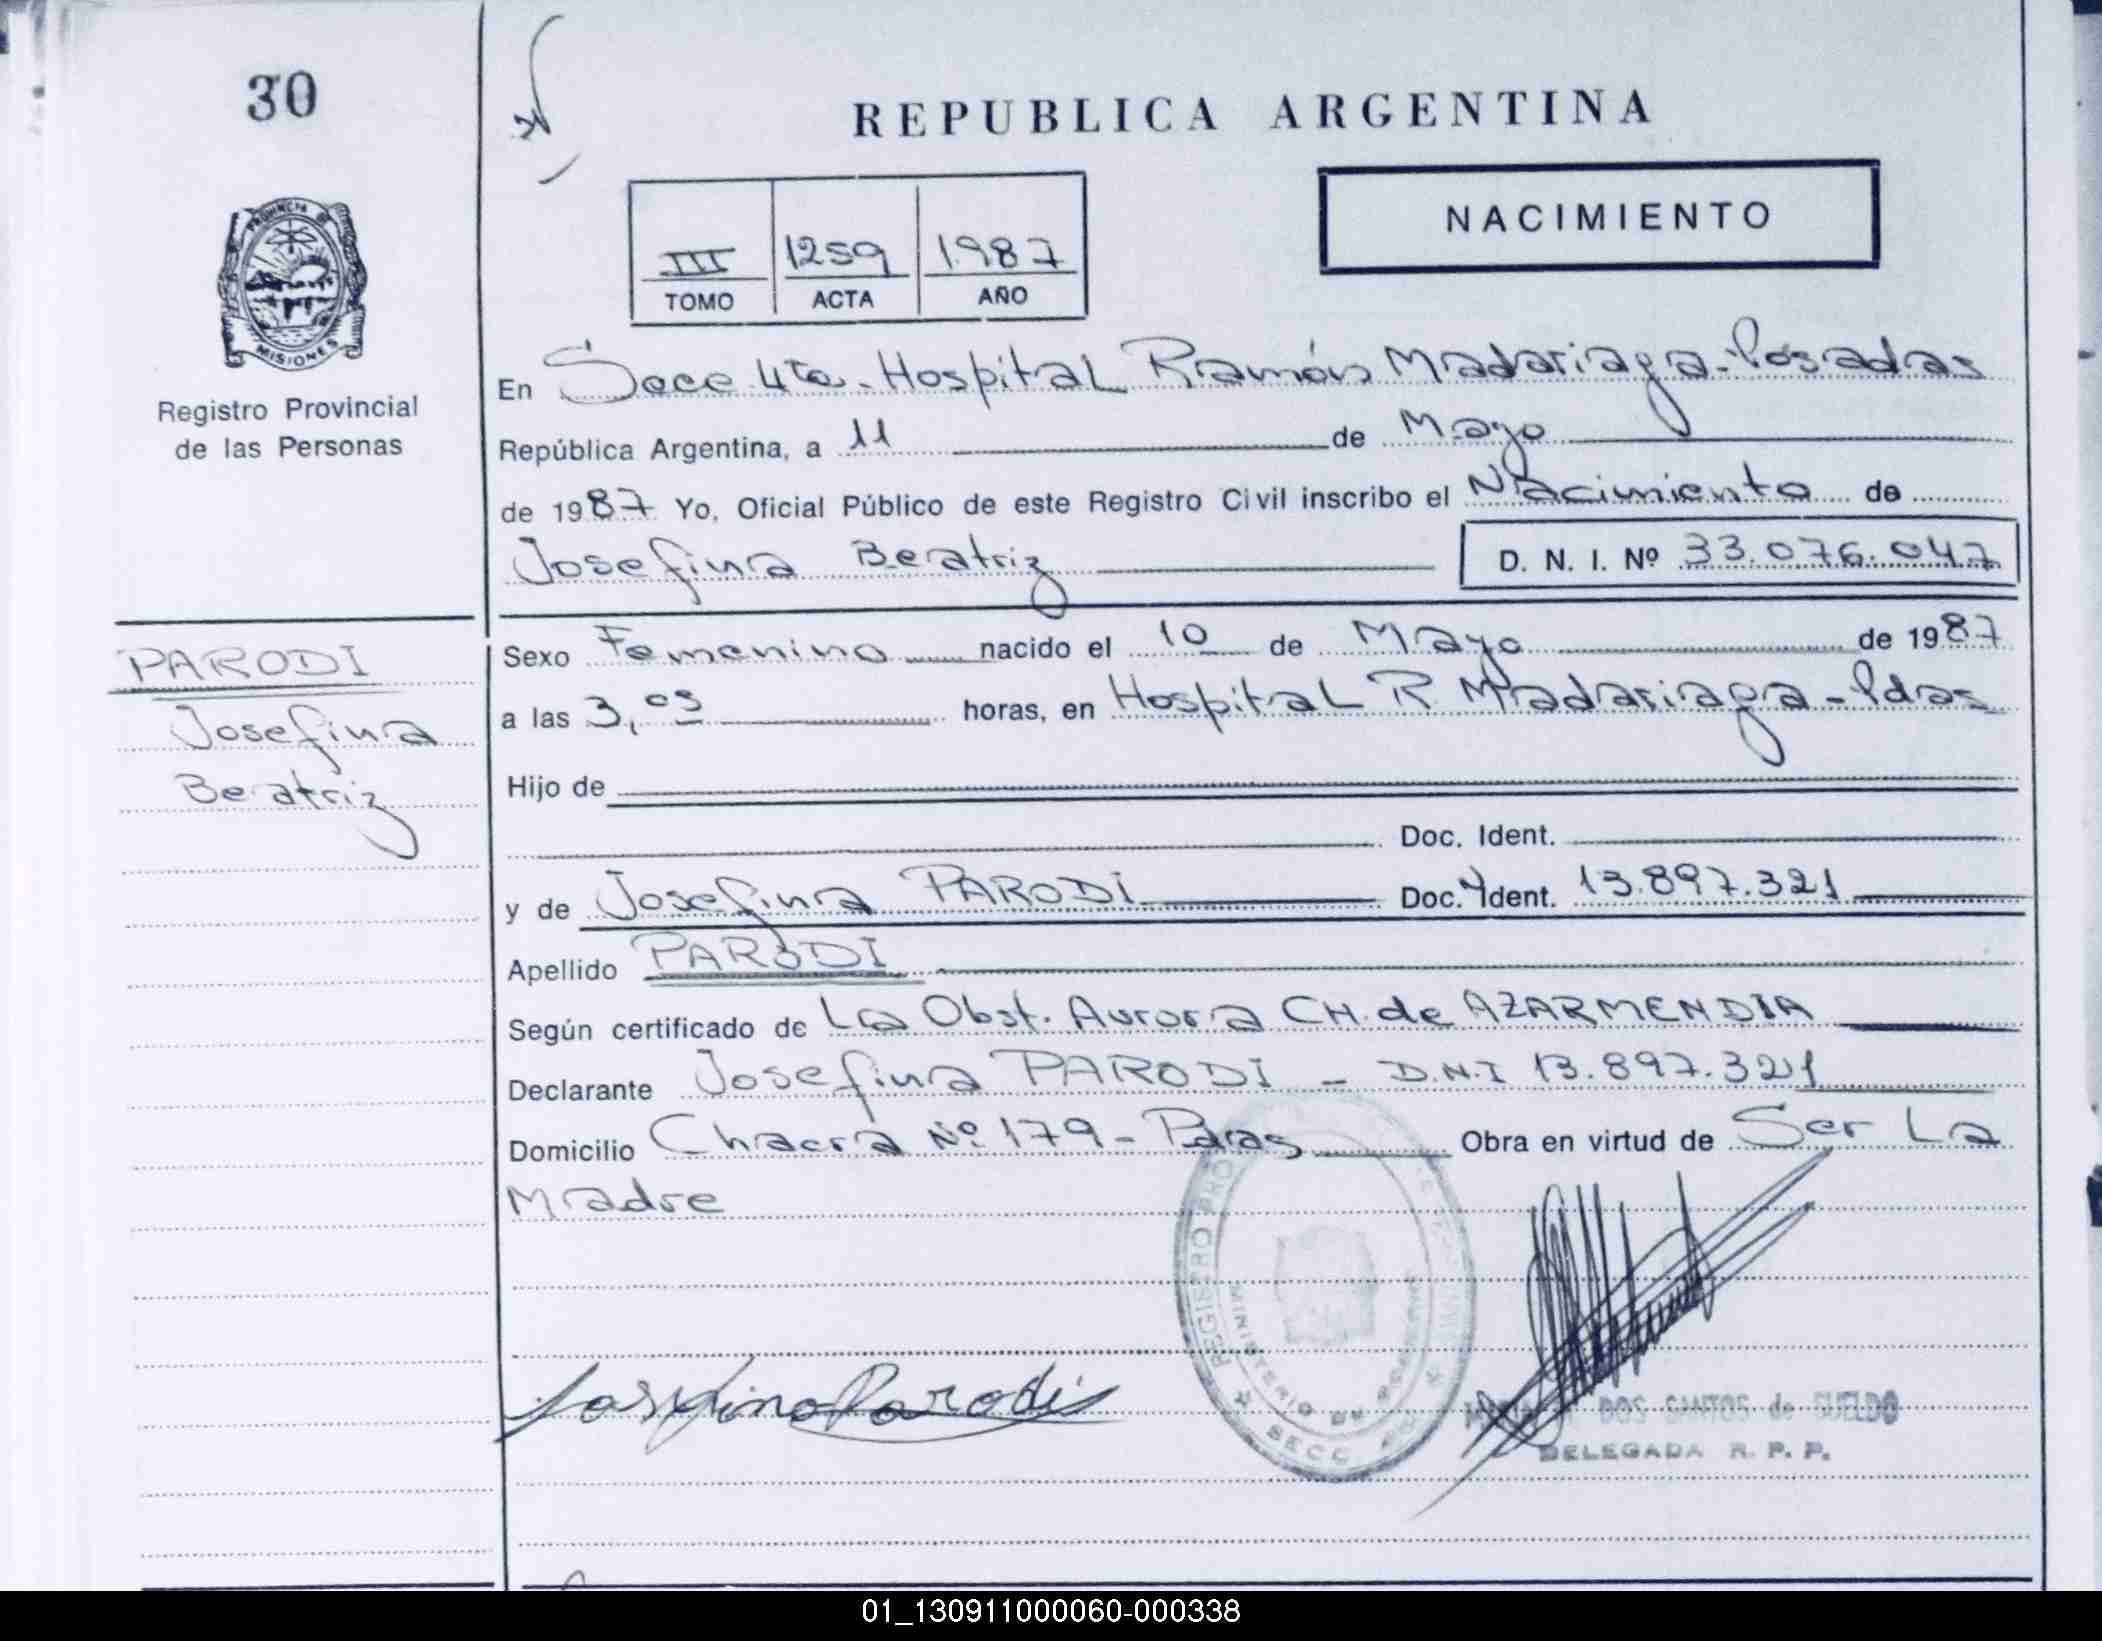 30
REPUBLICA ARGENTINA
NACIMIENTO
III 1259 1987
TOMO ACTA AÑO
PROVINCIA DE
MISIONES
Registro Provincial
de las Personas
En Secc 4ta. Hospital Ramón Madariaga - Posadas
República Argentina, a 11 de Mayo
de 1987 Yo, Oficial Público de este Registro Civil inscribo el Nacimiento de
Josefina Beatriz D. N. I. Nº 33.076.047
PARODI
Josefina
Beatriz
Sexo Femenino nacido el 10 de Mayo de 1987
a las 3,05 horas, en Hospital R Madariaga - Pdas
Hijo de
Doc. Ident.
y de Josefina PARODI Doc. Ident. 13.897.321
Apellido PARODI
Según certificado de La Obst. Aurora CH. de AZARMENDIA
Declarante Josefina PARODI - D.N.I 13.897.321
Domicilio Chacra Nº 179 - Pdas Obra en virtud de Ser La
Madre
REGISTRO
MINISTERIO DE
SECC
Josefina Parodi
DOS SANTOS de SUELDO
DELEGADA R. P. P.
01_130911000060-000338